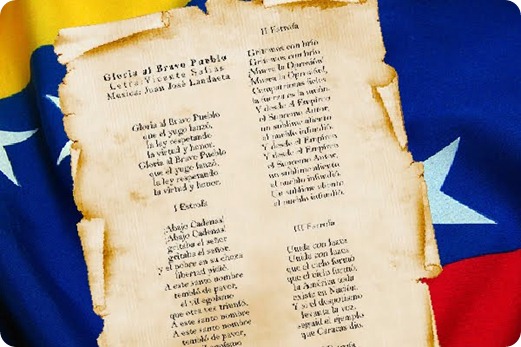 Gloria al Bravo Pueblo
Letra: Vicente Salias
Musica: Juan José Landaeta
Gloria al Bravo Pueblo
que el yugo lanzó,
la ley respetando
la virtud y honor.
Gloria al Bravo Pueblo
que el yugo lanzó,
la ley respetando
la virtud y honor.
I Estrofa
¡Abajo Cadenas!
¡Abajo Cadenas!
gritaba el señor
gritaba el señor.
y el pobre en su choza
libertad pidió.
A este santo nombre
tembló de pavor,
el vil egoismo
que otra vez triunfó.
A este santo nombre
A este santo nombre
tembló de pavor,
el vil egoismo
II Estrofa
Gritemos con brío
Gritemos con brío
¡Muera la Opresión!
¡Muera la Opresión!,
Compatriotas fieles
la fuerza es la unión.
Y desde el Empíreo
el Supremo Autor,
un sublime aliento
al pueblo infundió.
Y desde el Empíreo
Y desde el Empíreo
el Supremo Autor,
un sublime aliento
al pueblo infundió.
Un sublime aliento
al pueblo infundió.
III Estrofa
Unida con lazos
Unida con lazos
que el cielo formó
que el cielo formó,
la América toda
existe en Nación.
Y si el despotismo
levanta la voz,
seguid el ejemplo
que Caracas dio.